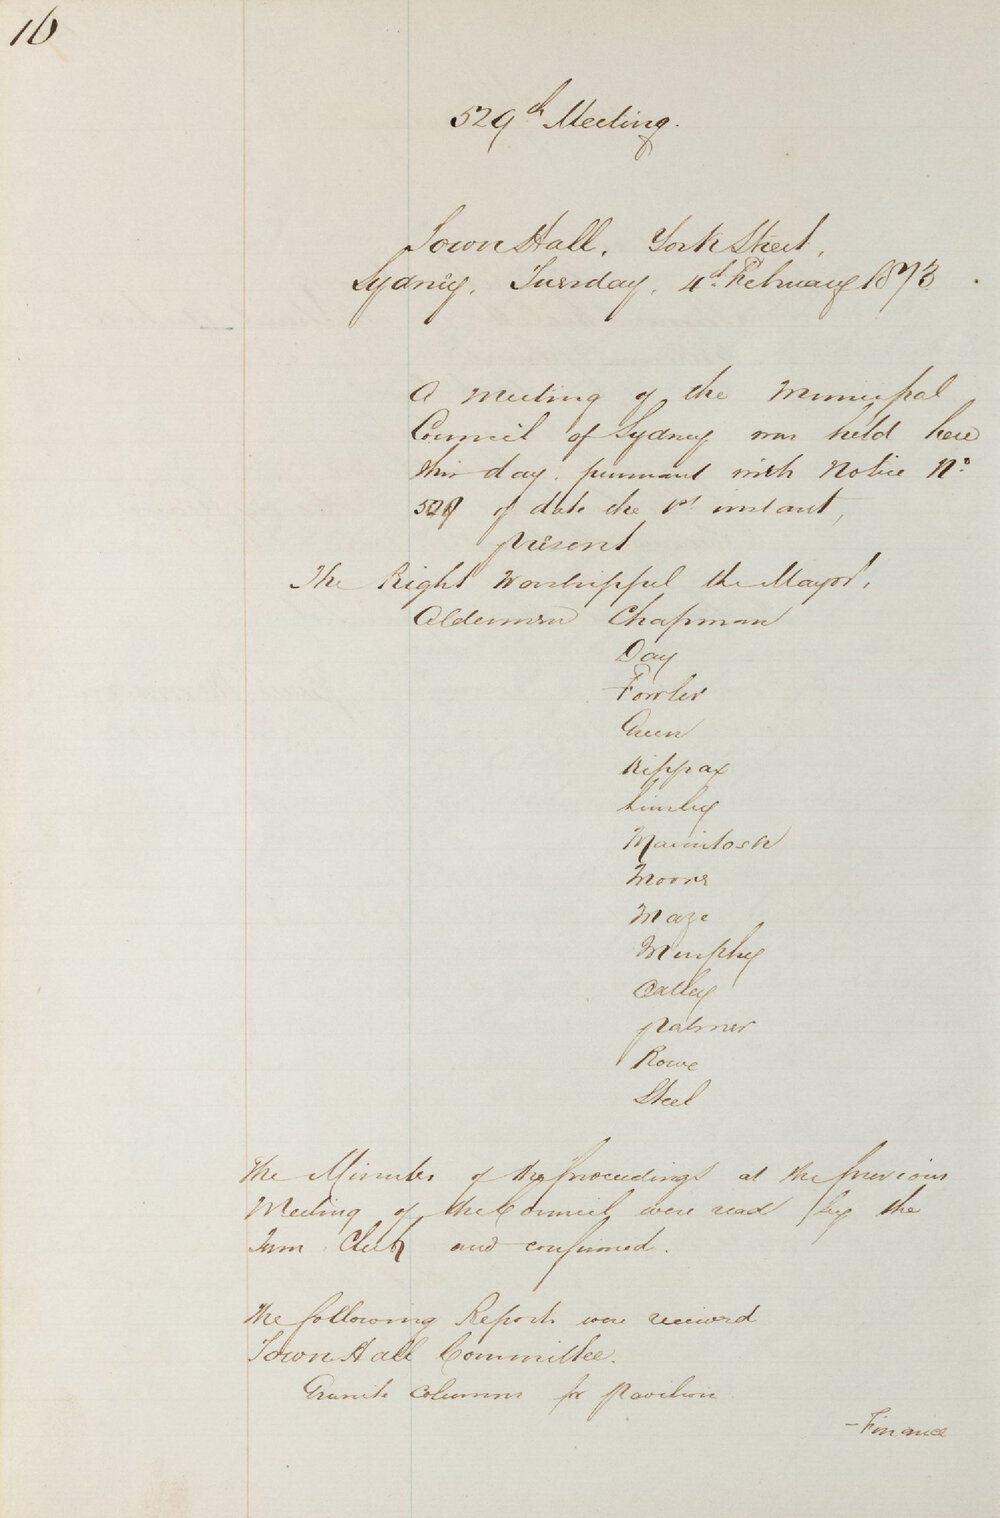 16
529th Meeting.
Town Hall, York Street,
Sydney, Tuesday, 4th February 1873.
A meeting of the Municipal
Council of Sydney was held here
this day, pursuant with Notice No.
529 of date the 1st instant,
present
The Right Worshipful the Mayor,
Aldermen Chapman
Day
Fowler
Green
Kippax
Linsley
Macintosh
Moore
Maze
Murphy
Oatley
Palmer
Rowe
Steel
The Minutes of the Proceedings at the previous
Meeting of the Council were read by the
Town Clerk and confirmed.
The following Reports were received
Town Hall Committee.
Granite Columns for pavilion
- Finance